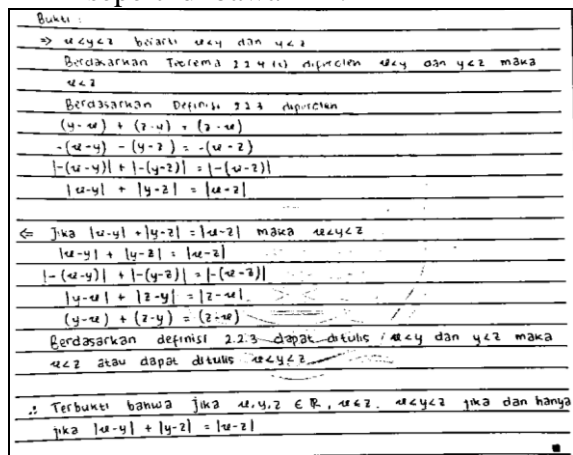 Bukti :
⇒ x<y<z berarti x<y dan y<z
Berdasarkan Teorema 2 2 4 (1) diperoleh x<y dan y<z maka
x<z
Berdasarkan Definisi 2 2 3 diperoleh
(y-x) + (z-y) = (z-x)
-(x-y) - (y-z) = -(x-z)
|-(x-y)| + |-(y-z)| = |-(x-z)|
|x-y| + |y-z| = |x-z|
⇐ Jika |x-y| + |y-z| = |x-z| maka x<y<z
|x-y| + |y-z| = |x-z|
|-(x-y)| + |-(y-z)| = |-(x-z)|
|y-x| + |z-y| = |z-x|.
(y-x) + (z-y) = (z-x)
Berdasarkan definisi 2.2.3 dapat ditulis x<y dan y<z maka
x<z atau dapat ditulis x<y<z
∴ Terbukti bahwa jika x,y,z ∈ R, x≤z. x<y<z jika dan hanya
jika |x-y| + |y-z| = |x-z|